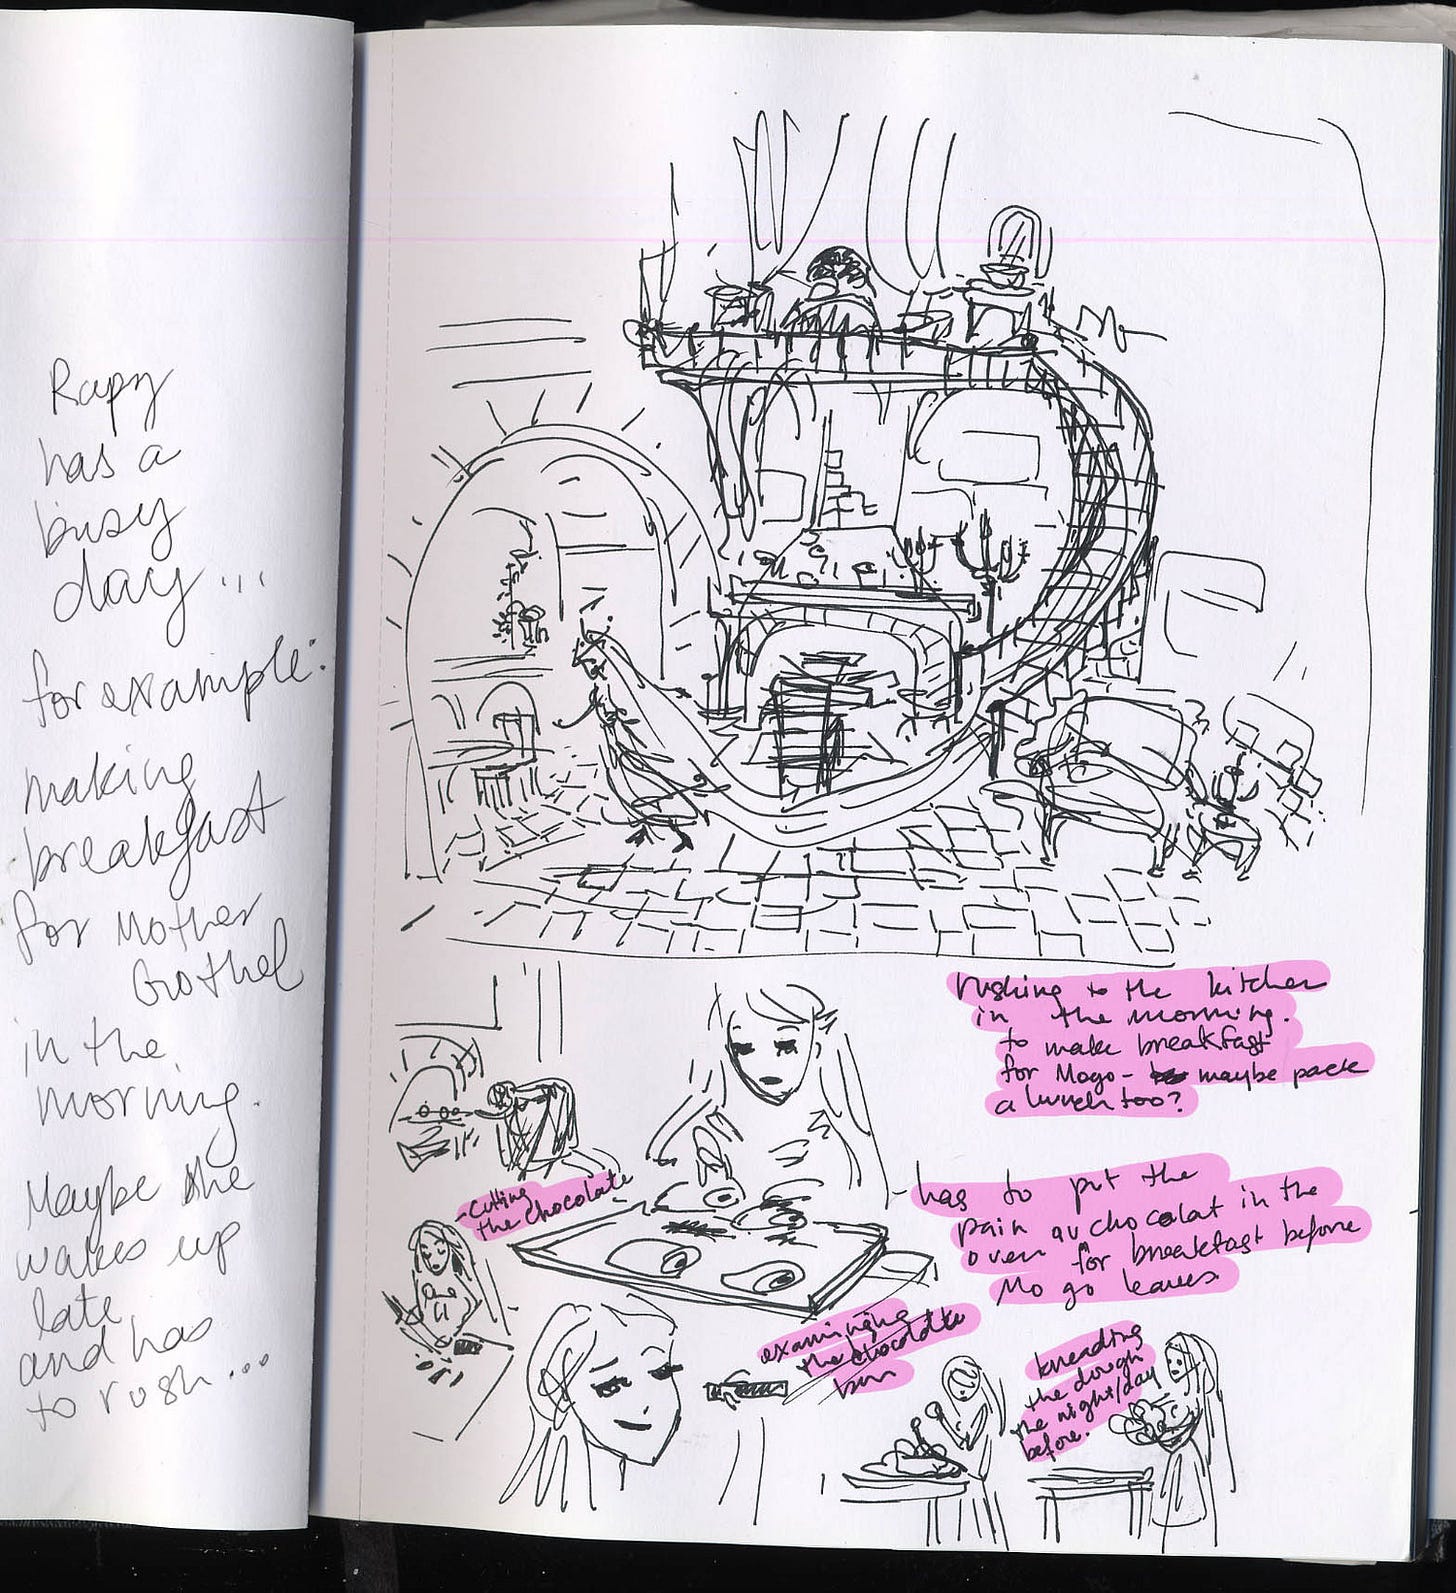 Rapy
has a
busy
day...
for example:
making
breakfast
for Mother
Gothel
in the
morning.
Maybe she
wakes up
late
and has
to rush...
rushing to the kitchen
in the morning.
to make breakfast
for Mogo - maybe pack
a lunch too?
- cutting
the chocolate
- has to put the
pain au chocolat in the
oven for breakfast before
Mo go leaves
examinging
the chocolate
bar
kneading
the dough
the night/day
before.